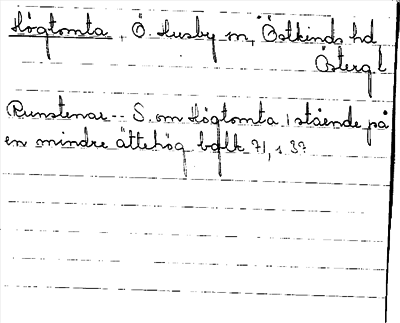 Högtomta, Ö. Husby sn, Östkinds hd
Östergl
Runstenar -- S. om Högtomta 1 stående på
en mindre ättehög